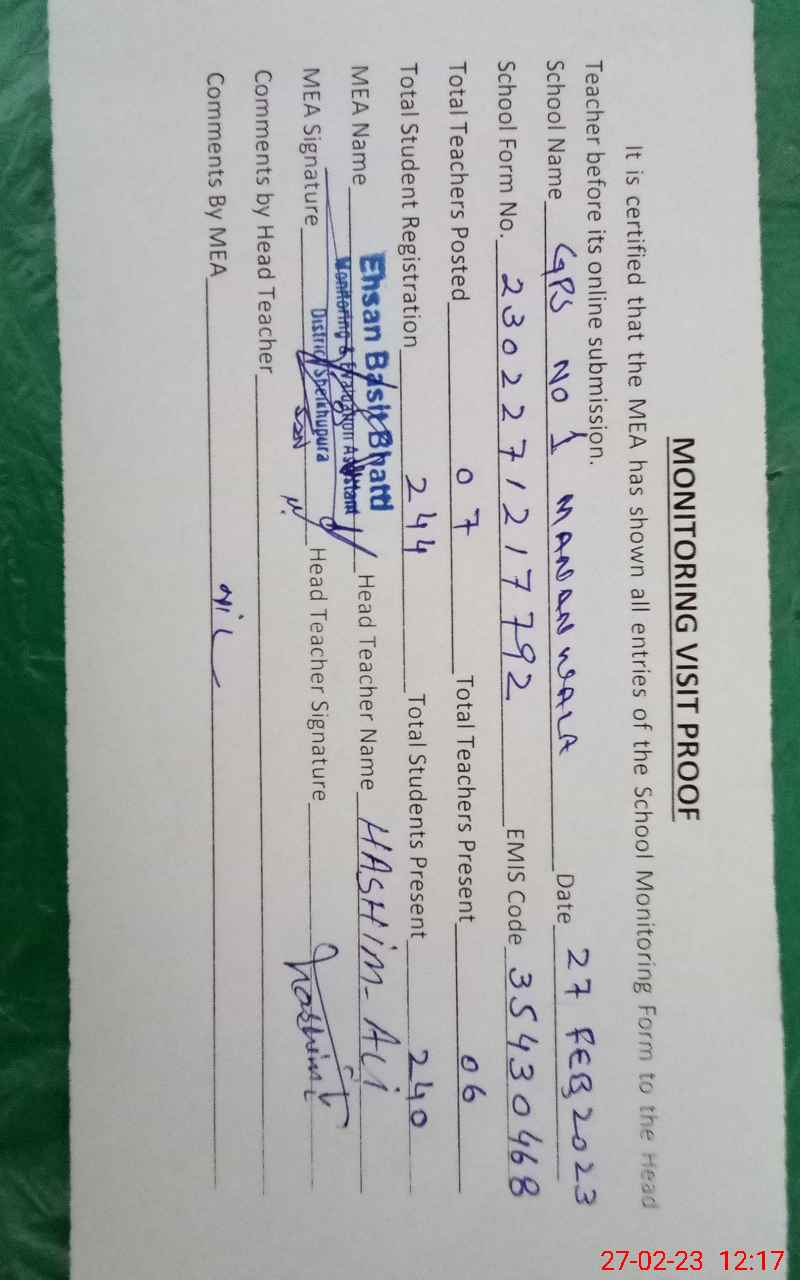 MONITORING VISIT PROOF
It is certified that the MEA has shown all entries of the School Monitoring Form to the Head
Teacher before its online submission.
School Name GPS NO 1 MANANWALA Date 27 FEB 2023
School Form No. 2302271217792 EMIS Code 35430468
Total Teachers Posted 07 Total Teachers Present 06
Total Student Registration 244 Total Students Present 240
MEA Name Ehsan Basit Bhatti Head Teacher Name HASHIM-ALI
Monitoring & Evaluation Assistant
MEA Signature District Sheikhupura Head Teacher Signature Hashim
Comments by Head Teacher
Comments By MEA NiL
27-02-23 12:17